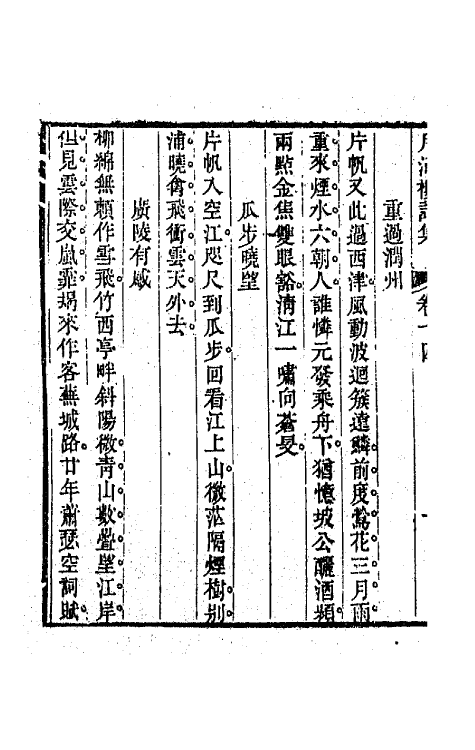 月滿樓詩集 卷十四
重過潤州
片帆又此過西津風動波迴簇遠鱗前度鶯花三月雨
重來煙水六朝人誰憐元發乘舟下猶憶坡公釃酒頻
兩點金焦雙眼豁清江一嘯向蒼旻
瓜步曉望
片帆入空江咫尺到瓜步回看江上山微茫隔煙樹别
浦曉禽飛衝雲天外去
廣陵有感
柳綿無賴作雪飛竹西亭畔斜陽微靑山數疊望江岸
但見雲際交嵐霏朅來作客蕪城路廿年蕭瑟空詞賦